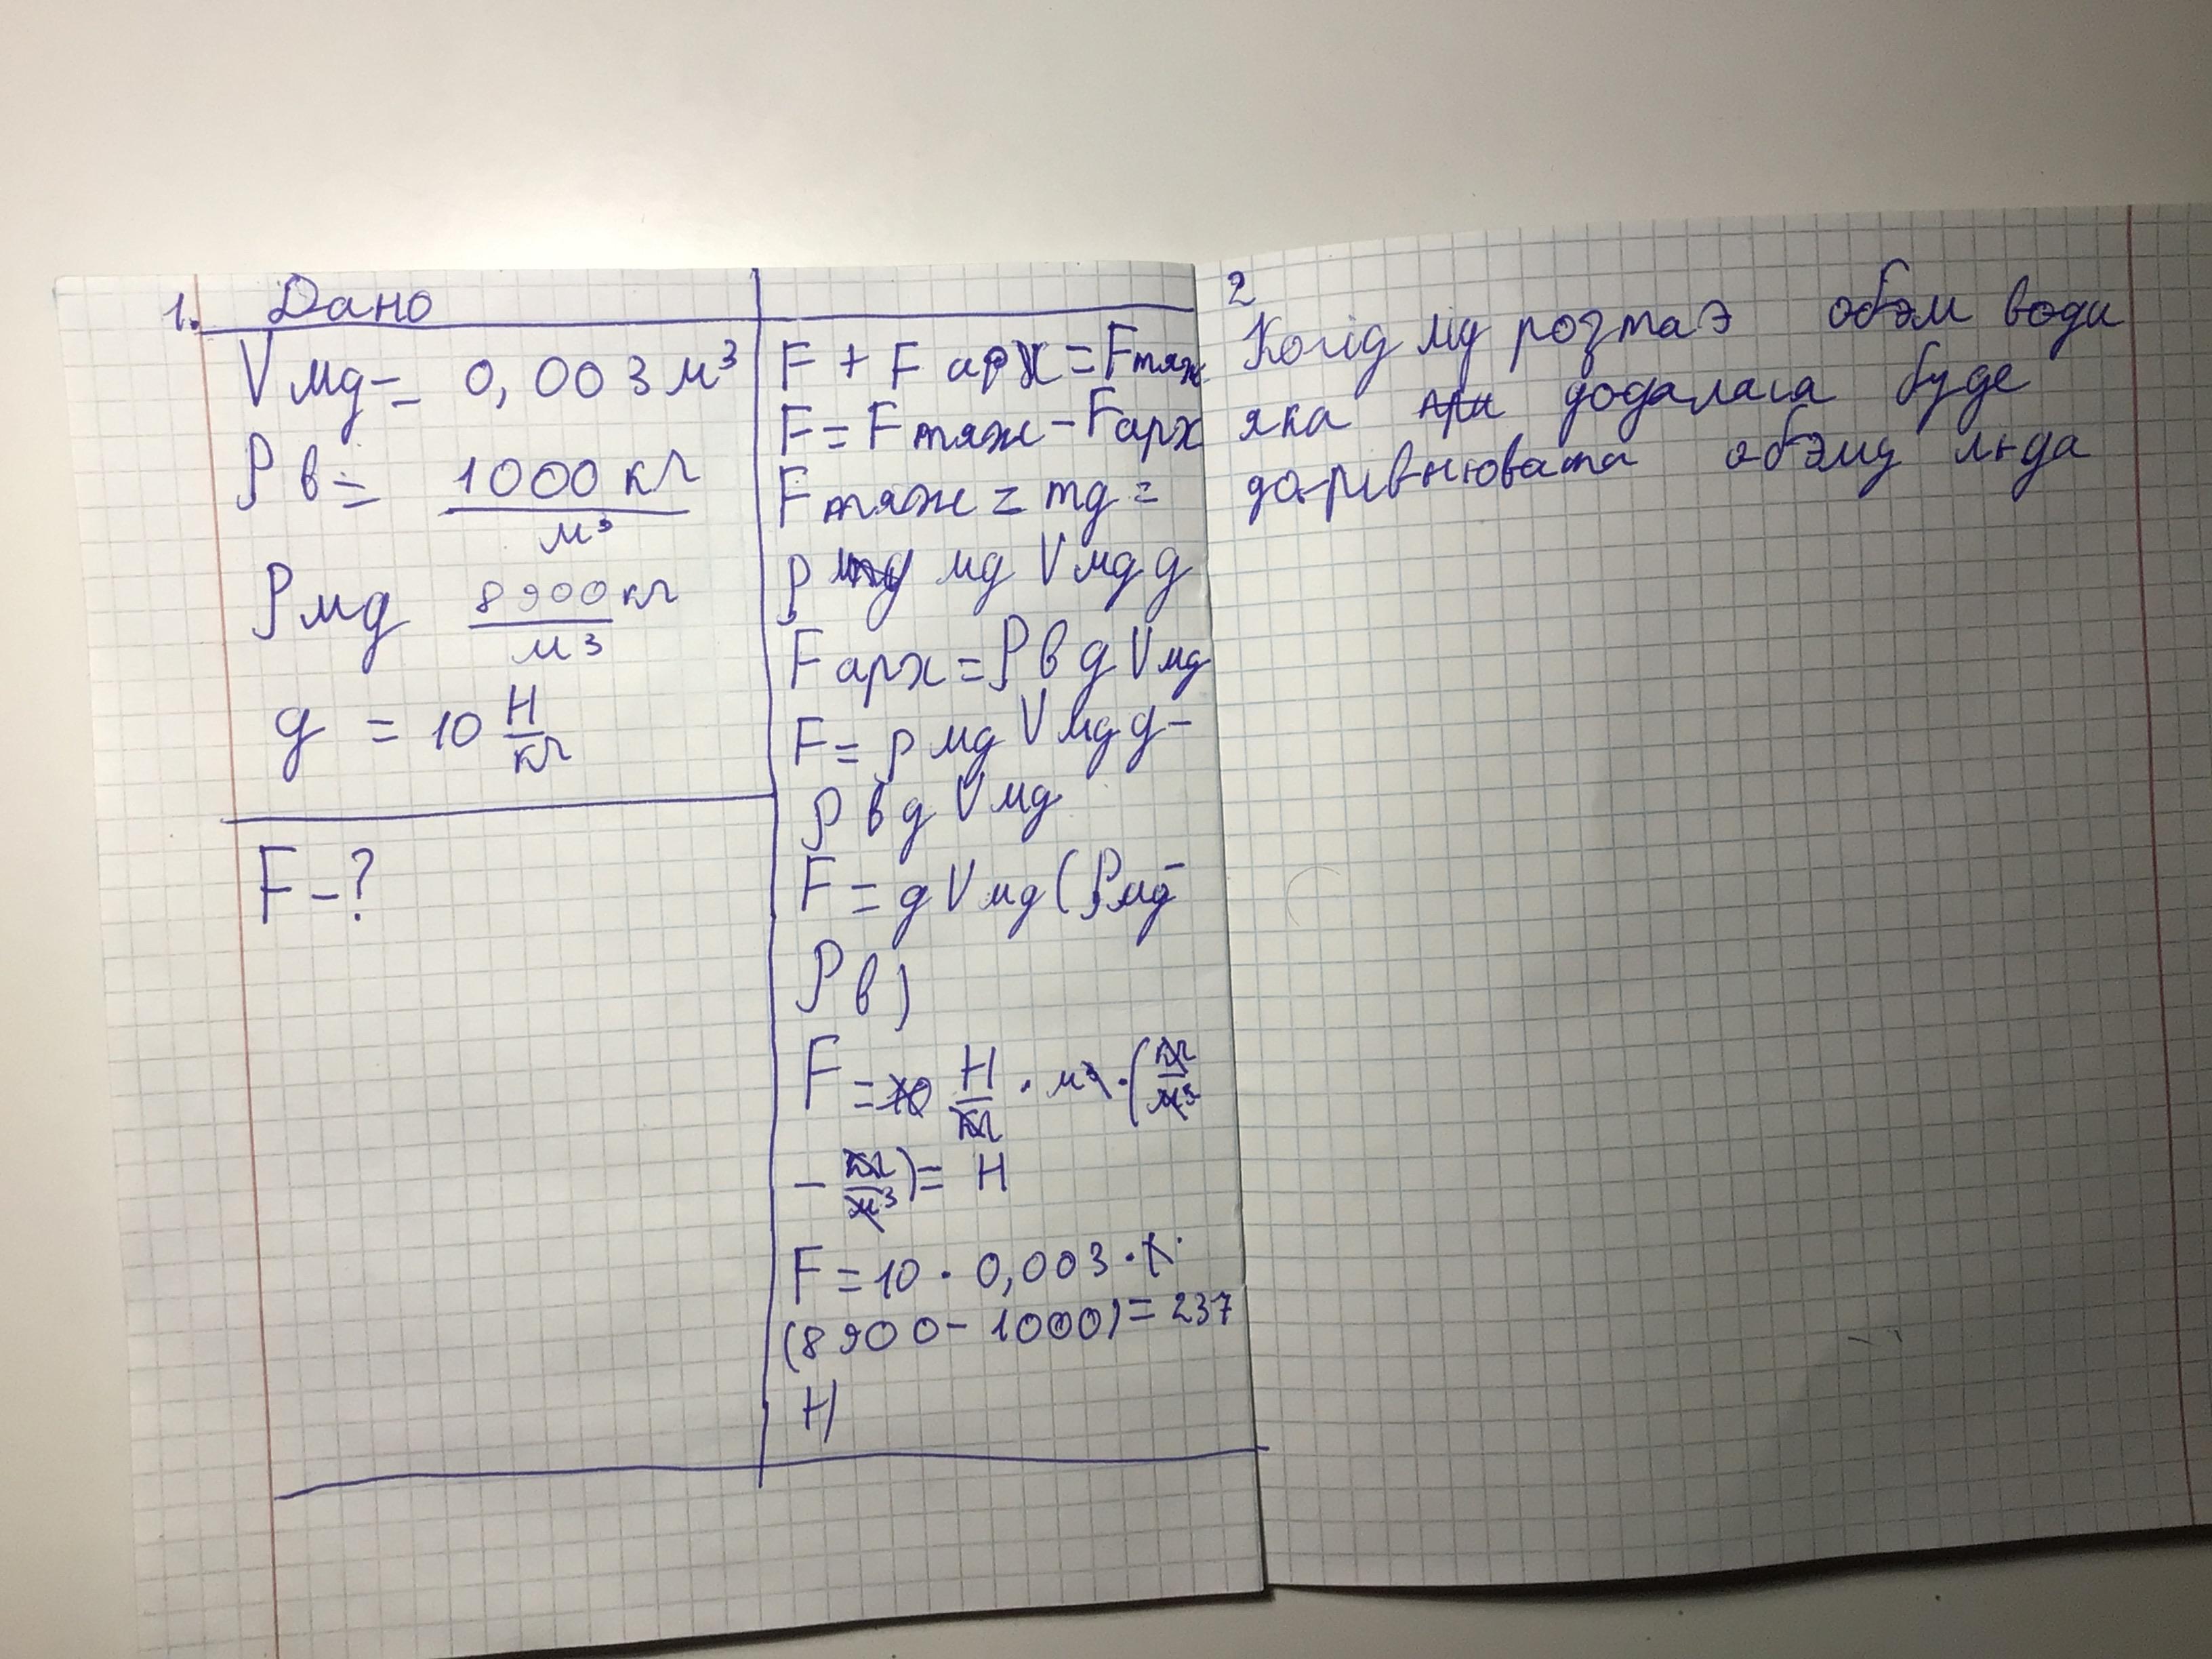 1. Дано
Vмд = 0,003 м³
ρв = 1000 кг/м³
ρмд 8900 кг/м³
g = 10 Н/кг
F - ?
F + F арх = Fтяж
F = Fтяж - Fарх
Fтяж = mg =
ρ мд Vмд g
Fарх = ρв g Vмд
F = ρ мд Vмд g -
ρ в g Vмд
F = g Vмд (ρмд -
ρв)
F = Н/кг · м³ · (кг/м³
- кг/м³) = Н
F = 10 · 0,003 ·
(8900 - 1000) = 237
Н
2
Колід лід розтаэ обэм води
яка додалася буде
дорівнювати обэму льда